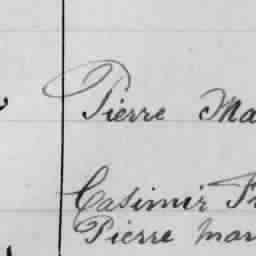 Pierre Ma
Casimir Fr
Pierre mar